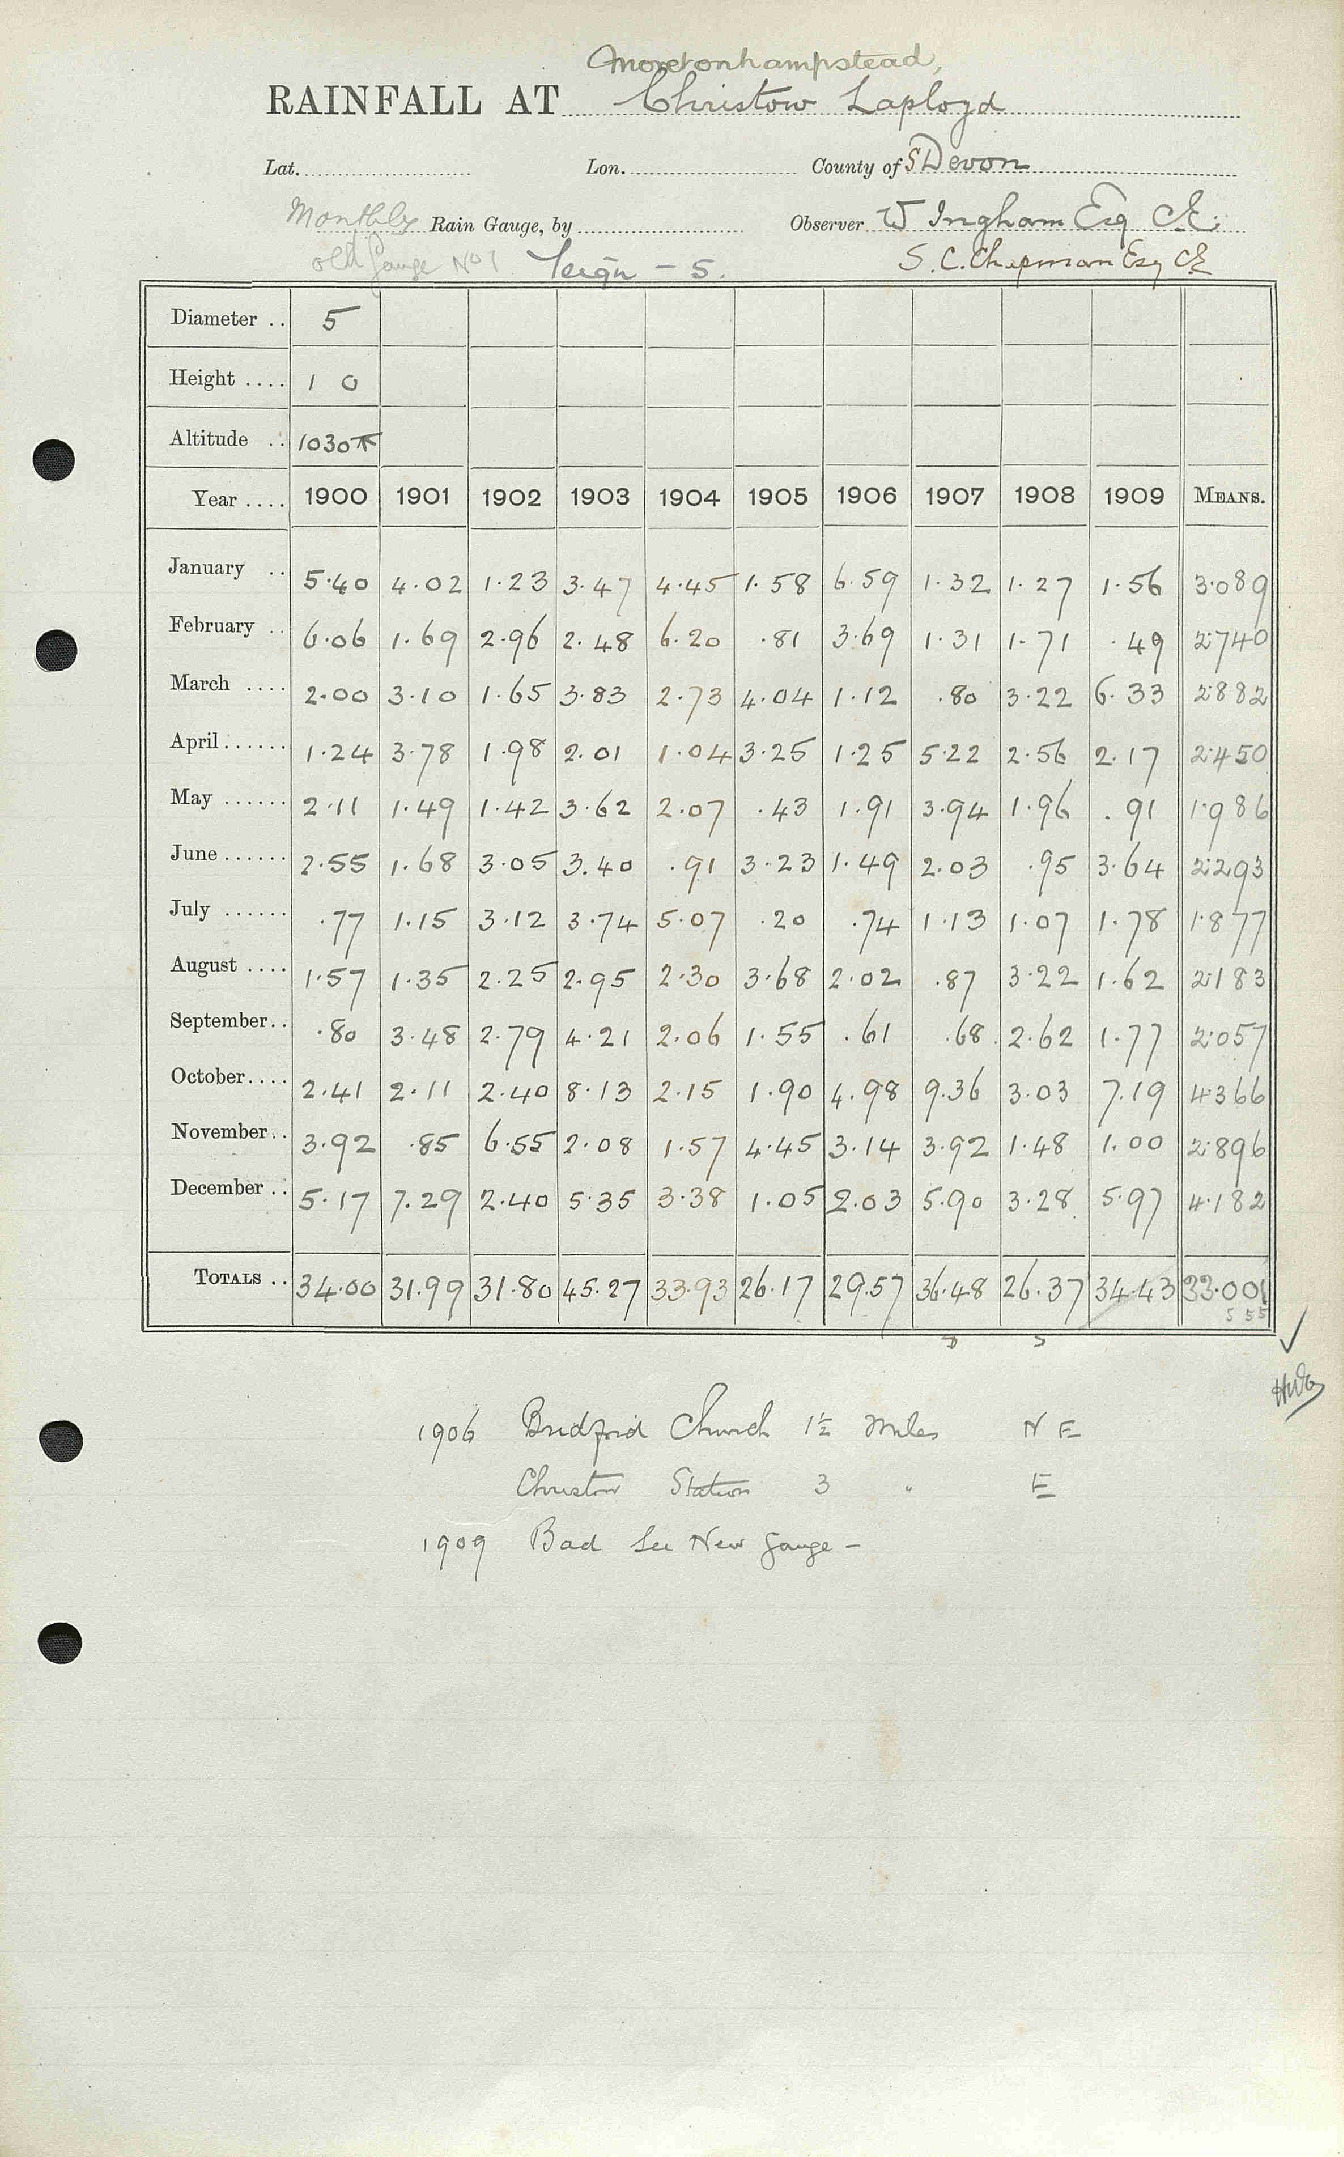 Moretonhampstead,
RAINFALL AT Christow Laployd
Lat. Lon. County of S Devon
Monthly Rain Gauge, by Observer W Ingham Esq C.E.
old Gauge No 1 Teign - 5. S. C. Chapman Esq CE
Diameter .. 5
Height .... 1 0
Altitude .. 1030
Year .... 1900 1901 1902 1903 1904 1905 1906 1907 1908 1909 MEANS.
January .. 5.40 4.02 1.23 3.47 4.45 1.58 6.59 1.32 1.27 1.56 3.089
February .. 6.06 1.69 2.96 2.48 6.20 .81 3.69 1.31 1.71 .49 2.740
March .... 2.00 3.10 1.65 3.83 2.73 4.04 1.12 .80 3.22 6.33 2.882
April...... 1.24 3.78 1.98 2.01 1.04 3.25 1.25 5.22 2.56 2.17 2.450
May ...... 2.11 1.49 1.42 3.62 2.07 .43 1.91 3.94 1.96 .91 1.986
June ...... 2.55 1.68 3.05 3.40 .91 3.23 1.49 2.03 .95 3.64 2.293
July ...... .77 1.15 3.12 3.74 5.07 .20 .74 1.13 1.07 1.78 1.877
August .... 1.57 1.35 2.25 2.95 2.30 3.68 2.02 .87 3.22 1.62 2.183
September.. .80 3.48 2.79 4.21 2.06 1.55 .61 .68 2.62 1.77 2.057
October.... 2.41 2.11 2.40 8.13 2.15 1.90 4.98 9.36 3.03 7.19 4.366
November.. 3.92 .85 6.55 2.08 1.57 4.45 3.14 3.92 1.48 1.00 2.896
December .. 5.17 7.29 2.40 5.35 3.38 1.05 2.03 5.90 3.28 5.97 4.182
TOTALS .. 34.00 31.99 31.80 45.27 33.93 26.17 29.57 36.48 26.37 34.43 33.001
1906 Bridford Church 1½ Miles N E
Christow Station 3 " E
1909 Bad See New Gauge -